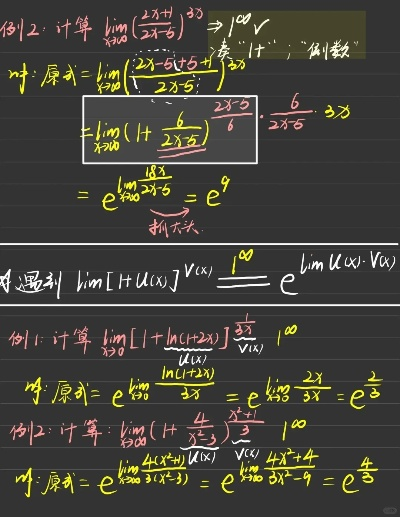 例2: 计算 lim_{x→∞}(\frac{2x+1}{2x-5})^{3x} ⇒ 1^∞ √
凑"1+" ; "倒数"
解: 原式 = lim_{x→∞}(\frac{2x-5+5+1}{2x-5})^{3x}
= lim_{x→∞}(1+\frac{6}{2x-5})^{\frac{2x-5}{6}·\frac{6}{2x-5}·3x}
= e^{lim_{x→∞}\frac{18x}{2x-5}} = e^9
抓大头
遇到 lim[1+u(x)]^{v(x)} \overset{1^∞}{=} e^{lim u(x)·v(x)}
例1: 计算 lim_{x→0}[1+ln(1+2x)]^{\frac{1}{3x}} 1^∞
u(x) v(x)
解: 原式 = e^{lim_{x→0}\frac{ln(1+2x)}{3x}} = e^{lim_{x→0}\frac{2x}{3x}} = e^{\frac{2}{3}}
例2: 计算: lim_{x→∞}(1+\frac{4}{x²-3})^{\frac{x²+1}{3}} 1^∞
u(x) v(x)
解: 原式 = e^{lim_{x→∞}\frac{4(x²+1)}{3(x²-3)}} = e^{lim_{x→∞}\frac{4x²+4}{3x²-9}} = e^{\frac{4}{3}}